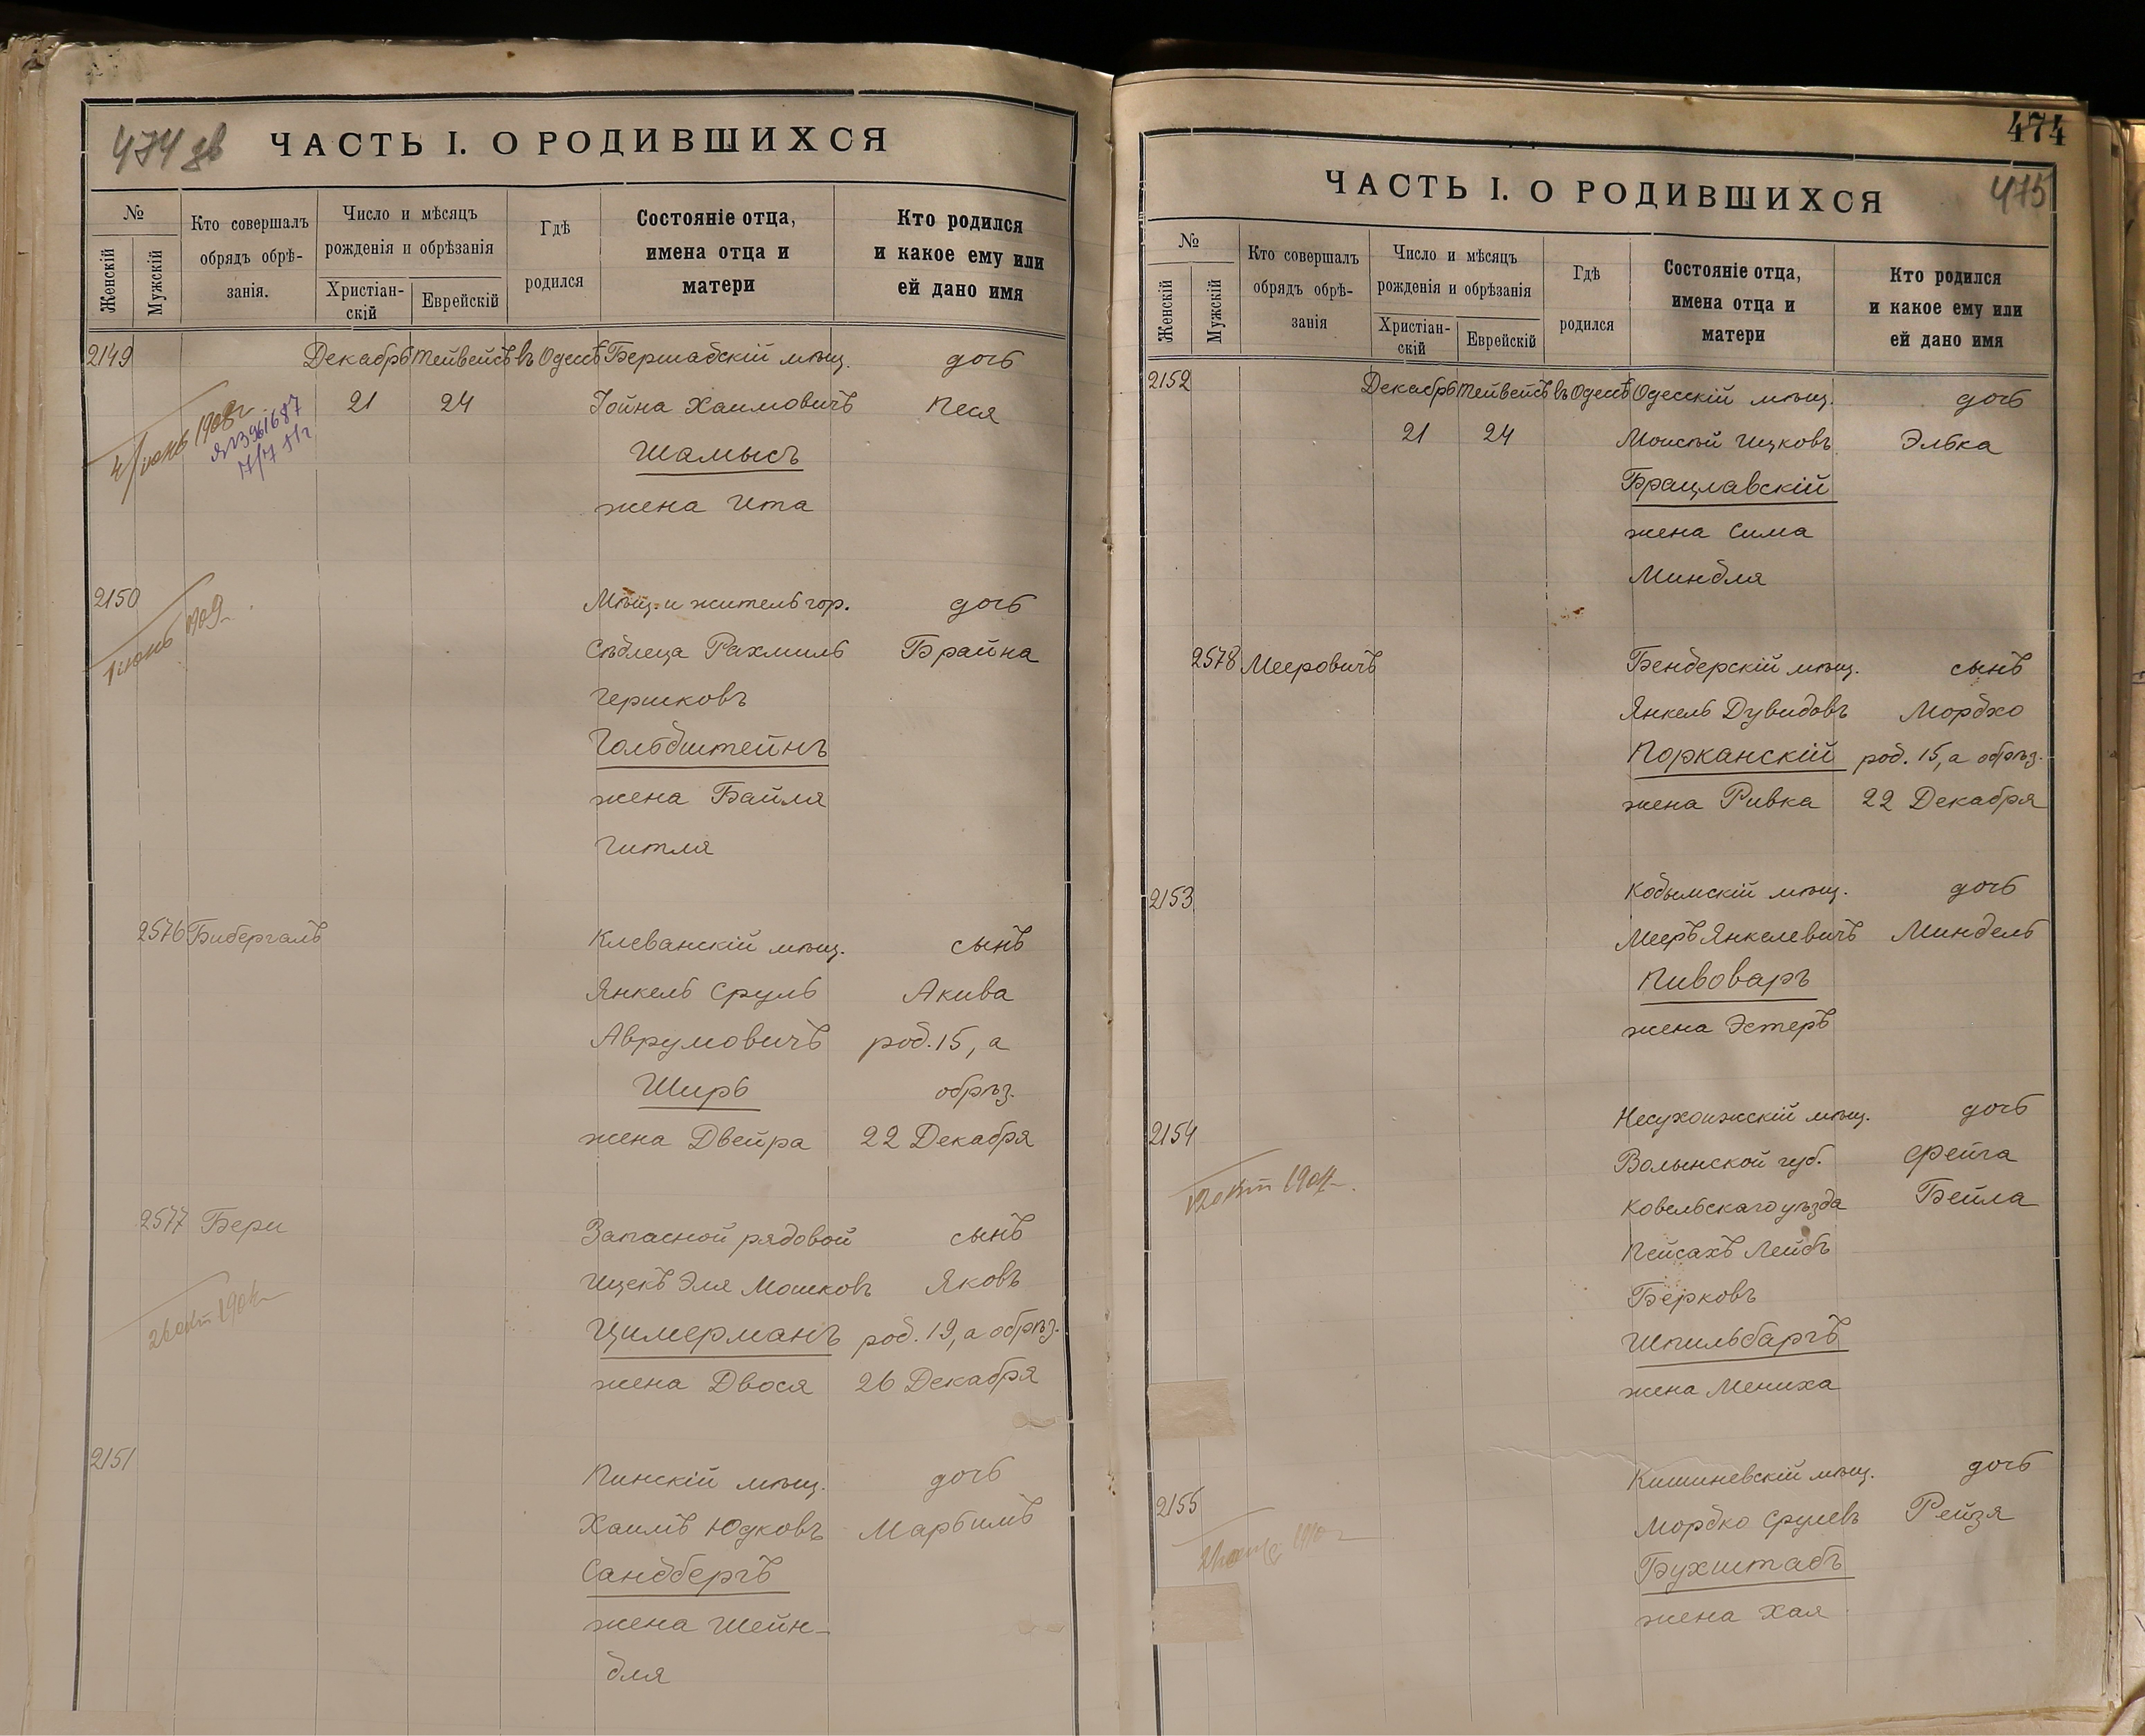 474 об
ЧАСТЬ I. О РОДИВШИХСЯ
№
Женскій
Мужскій
Кто совершалъ
обрядъ обрѣ-
занія.
Число и мѣсяцъ
рожденія и обрѣзанія
Христіан-
скій
Еврейскій
Гдѣ
родился
Состояніе отца,
имена отца и
матери
Кто родился
и какое ему или
ей дано имя
2149 Декабрь Тейвейсъ въ Одессѣ Бершадскій мѣщ. дочь
21 24 Іойна Хаимовичъ Песя
Шамысъ
жена Ита
4/юнь 1908 г
7/7 11 г
2150 Мѣщ. и житель гор. дочь
Сѣдлеца Рахмиль Брайна
Гершковъ
Гольдштейнъ
жена Байля
Гитля
1909
2576 Бибергалъ Клеванскій мѣщ. сынъ
Янкель Сруль Акива
Аврумовичъ род. 15, а
Ширь обрѣз.
жена Двейра 22 Декабря
2577 Бери Запасной рядовой сынъ
Ицекъ Эля Мошковъ Яковъ
Цимерманъ род. 19, а обрѣз.
жена Двося 26 Декабря
2151 Пинскій мѣщ. дочь
Хаимъ Юдковъ Марбимъ
Сандбергъ
жена Шейн-
для
474
475
ЧАСТЬ I. О РОДИВШИХСЯ
№
Женскій
Мужскій
Кто совершалъ
обрядъ обрѣ-
занія
Число и мѣсяцъ
рожденія и обрѣзанія
Христіан-
скій
Еврейскій
Гдѣ
родился
Состояніе отца,
имена отца и
матери
Кто родился
и какое ему или
ей дано имя
2152 Декабрь Тейвейсъ въ Одессѣ Одесскій мѣщ. дочь
21 24 Моисѣй Ицковъ Элька
Брацлавскій
жена Сима
Миндля
2578 Мееровичъ Бендерскій мѣщ. сынъ
Янкель Дувидовъ Мордхо
Порканскій род. 15, а обрѣз.
жена Ривка 22 Декабря
2153 Кобылскій мѣщ. дочь
Мееръ Янкелевичъ Миндель
Пивоваръ
жена Эстеръ
2154 Несухоижскій мѣщ. дочь
Волынской губ. Фейга
Ковельскаго уѣзда Бейла
Пейсахъ Лейбъ
Берковъ
Шпильбаргъ
жена Мениха
2155 Кишиневскій мѣщ. дочь
Мордко Срулевъ Рейзя
Бухштабъ
жена Хая